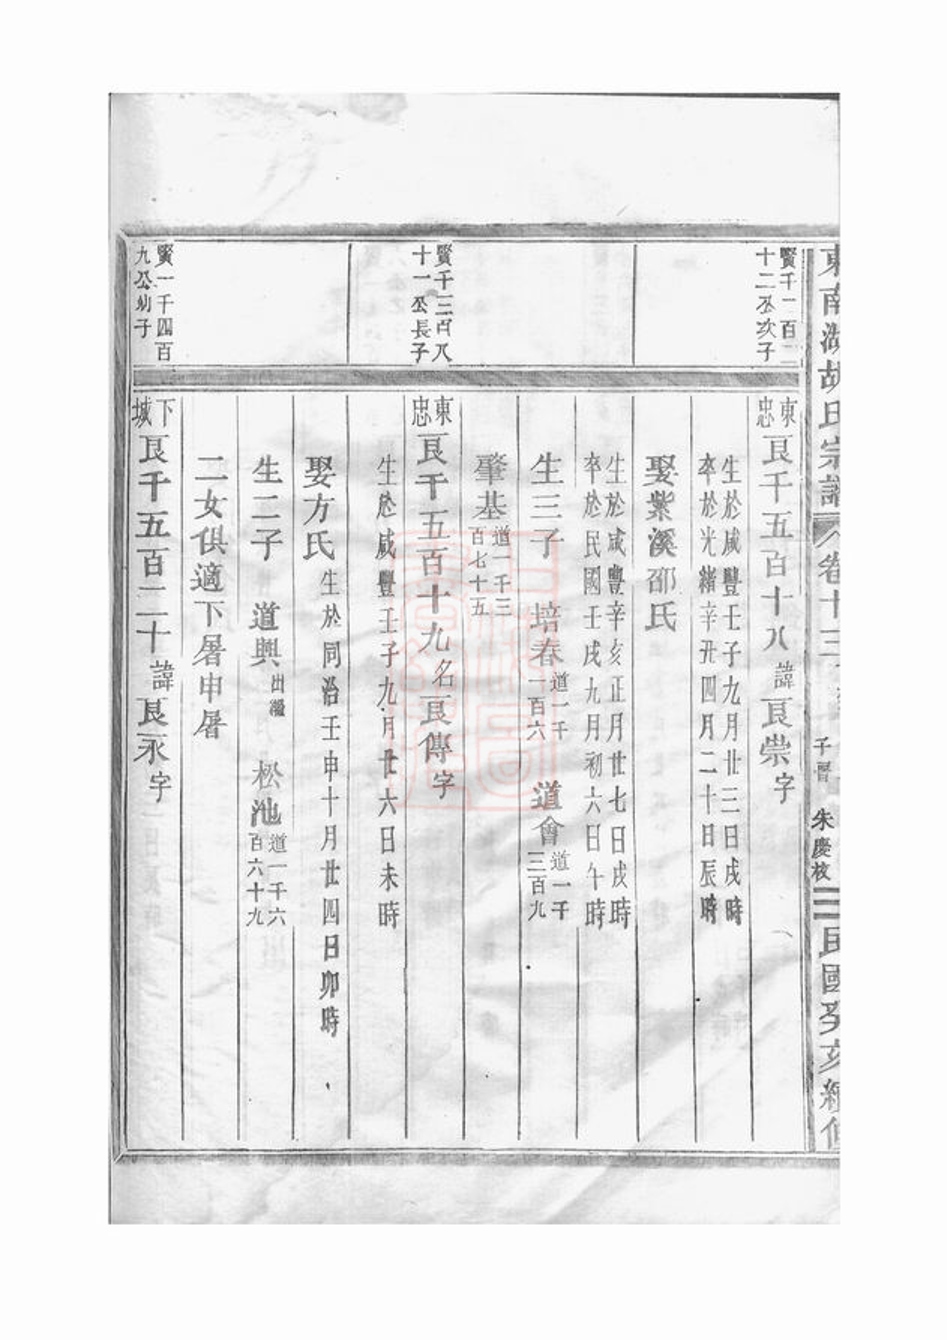 東南湖胡氏宗譜 卷十三 子晉 朱慶校 民國癸亥續修
賢千一百二
十二公次子
東忠 艮千五百十八 諱艮崇 字
生於咸豐壬子九月廿三日戌時
卒於光緒辛丑四月二十日辰時
娶紫溪邵氏
生於咸豐辛亥正月廿七日戌時
卒於民國壬戌九月初六日午時
生三子 培春 道一千一百六 道會 道一千三百九
肇基 道一千三百七十五
賢千三百八
十一公長子
東忠 艮千五百十九 名艮傳 字
生於咸豐壬子九月廿六日未時
娶方氏 生於同治壬申十月廿四日卯時
生二子 道興 出繼 松池 道一千六百六十九
二女俱適下暑申暑
賢一千四百
九公幼子
下城 艮千五百二十 諱艮永 字